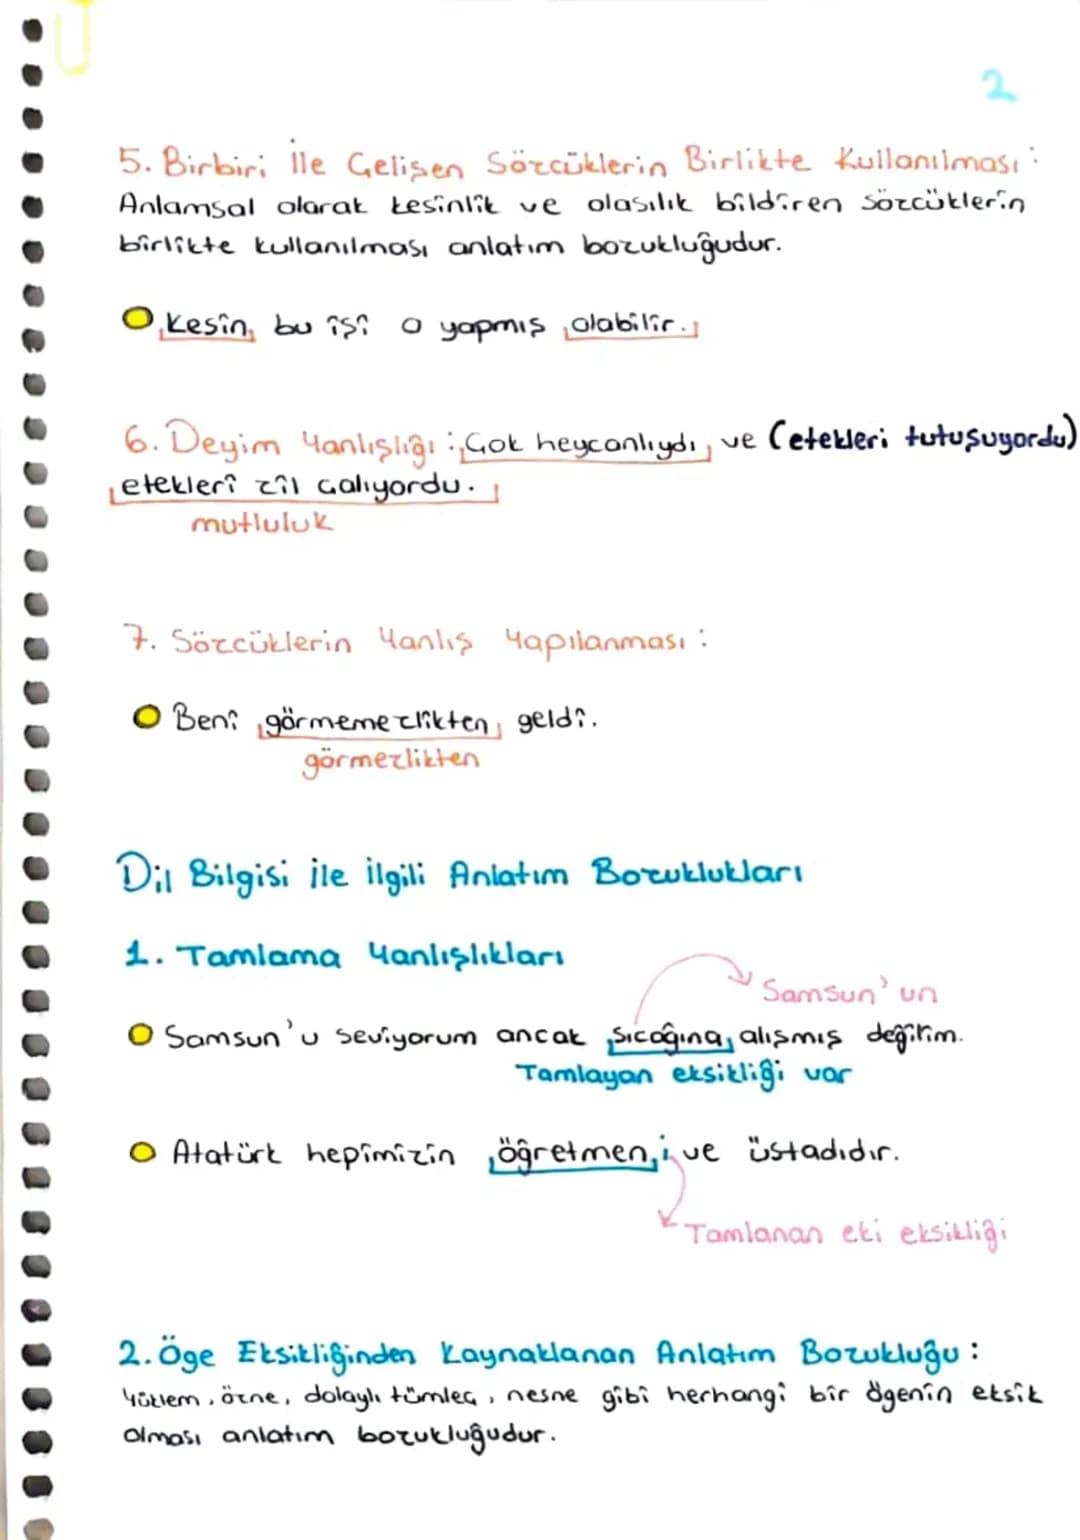 2
5. Birbiri İle Gelişen Sözcüklerin Birlikte Kullanılması :
Anlamsal olarak kesinlik ve olasılık bildiren sözcüklerin
birlikte kullanılması anlatım bozukluğudur.
Kesin bu işi o yapmış olabilir.
6. Deyim Yanlışlığı : Çok heycanlıydı ve (etekleri tutuşuyordu)
etekleri zil çalıyordu.
mutluluk
7. Sözcüklerin Yanlış Yapılanması :
Beni görmemezlikten geldi.
görmezlikten
Dil Bilgisi ile ilgili Anlatım Bozuklukları
1. Tamlama Yanlışlıkları
Samsun'un
Samsun'u seviyorum ancak sıcağına alışmış değilim.
Tamlayan eksikliği var
Atatürk hepimizin öğretmen,i ve üstadıdır.
Tamlanan eki eksikliği
2. Öge Eksikliğinden Kaynaklanan Anlatım Bozukluğu :
Yüklem, özne, dolaylı tümleç, nesne gibi herhangi bir ögenin eksik
olması anlatım bozukluğudur.